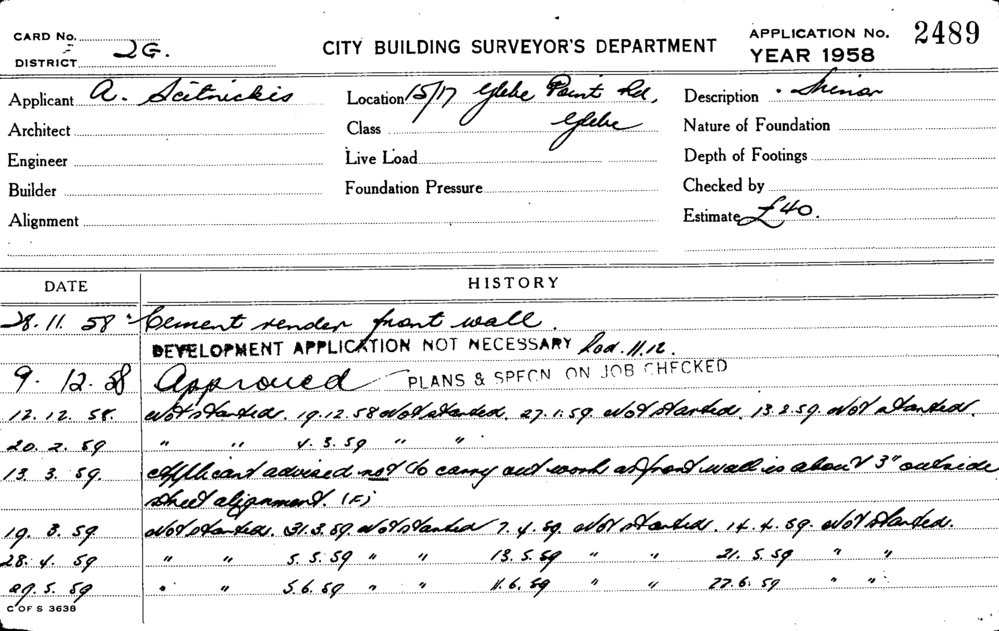 CARD No. CITY BUILDING SURVEYOR'S DEPARTMENT APPLICATION No. 2489
DISTRICT 2G. YEAR 1958
Applicant A. Scitnickis Location 15/17 Glebe Point Rd, Description Minor
Architect Class Glebe Nature of Foundation
Engineer Live Load Depth of Footings
Builder Foundation Pressure Checked by
Alignment Estimate £40.
DATE HISTORY
28.11.58 Cement render front wall.
DEVELOPMENT APPLICATION NOT NECESSARY 11.12.
9.12.58 Approved PLANS & SPECN ON JOB CHECKED
12.12.58. Not started. 19.12.58 Not started. 27.1.59. Not started. 13.2.59. Not started.
20.2.59 " " 4.3.59 " "
13.3.59. Applicant advised not to carry out work as front wall is about 3" outside
street alignment. (F)
19.3.59 Not started. 31.3.59. Not started 7.4.59. Not started. 14.4.59. Not started.
28.4.59 " " 5.5.59 " " 13.5.59 " " 21.5.59 " "
29.5.59 " " 5.6.59 " " 11.6.59 " " 22.6.59 " "
C OF S 3638